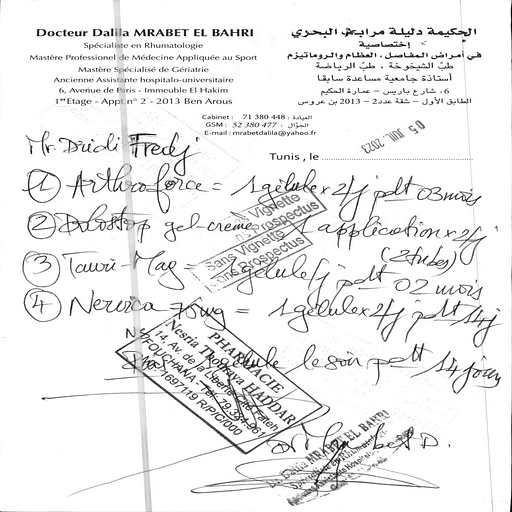 Docteur Dalila MRABET EL BAHRI
Spécialiste en Rhumatologie
Mastère Professionel de Médecine Appliquée au Sport
Mastère Spécialisé de Gériatrie
Ancienne Assistante hospitalo-universitaire
6, Avenue de Paris - Immeuble El Hakim
1er Etage - Appt n° 2 - 2013 Ben Arous
الحكيمة دليلة مرابط البحري
إختصاصية
في أمراض المفاصل، العظام والروماتيزم
طبّ الشيخوخة - طبّ الرياضة
أستاذة جامعية مساعدة سابقا
6، شارع باريس - عمارة الحكيم
الطابق الأول - شقة عدد2 - 2013 بن عروس
Cabinet : 71 380 448 : العيادة
GSM : 52 380 477 : الجوّال
E-mail : mrabetdalila@yahoo.fr
05 JUIL 2023
Tunis , le
Mr. Dridi Fredj
① Arthroforce = 1 gélule x 2/j pdt 03 mois
② Dolostop gel-crème 1 application x 2/j
(2 tubes)
③ Tauri-Mag = 1 gélule/j pdt 02 mois
④ Nervica 75mg = 1 gélule x 2/j pdt 14j
gélule le soir pdt 14 jours
Sans Vignette
Sans Prospectus
PHARMACIE
Nesria Thouraya HADDAR
14, Av. de la
FOUCHANA - Tél. 79.
1697119 R/P/C/000
Dr Mrabet D.
Dr. Dalila MRABET EL BAHRI